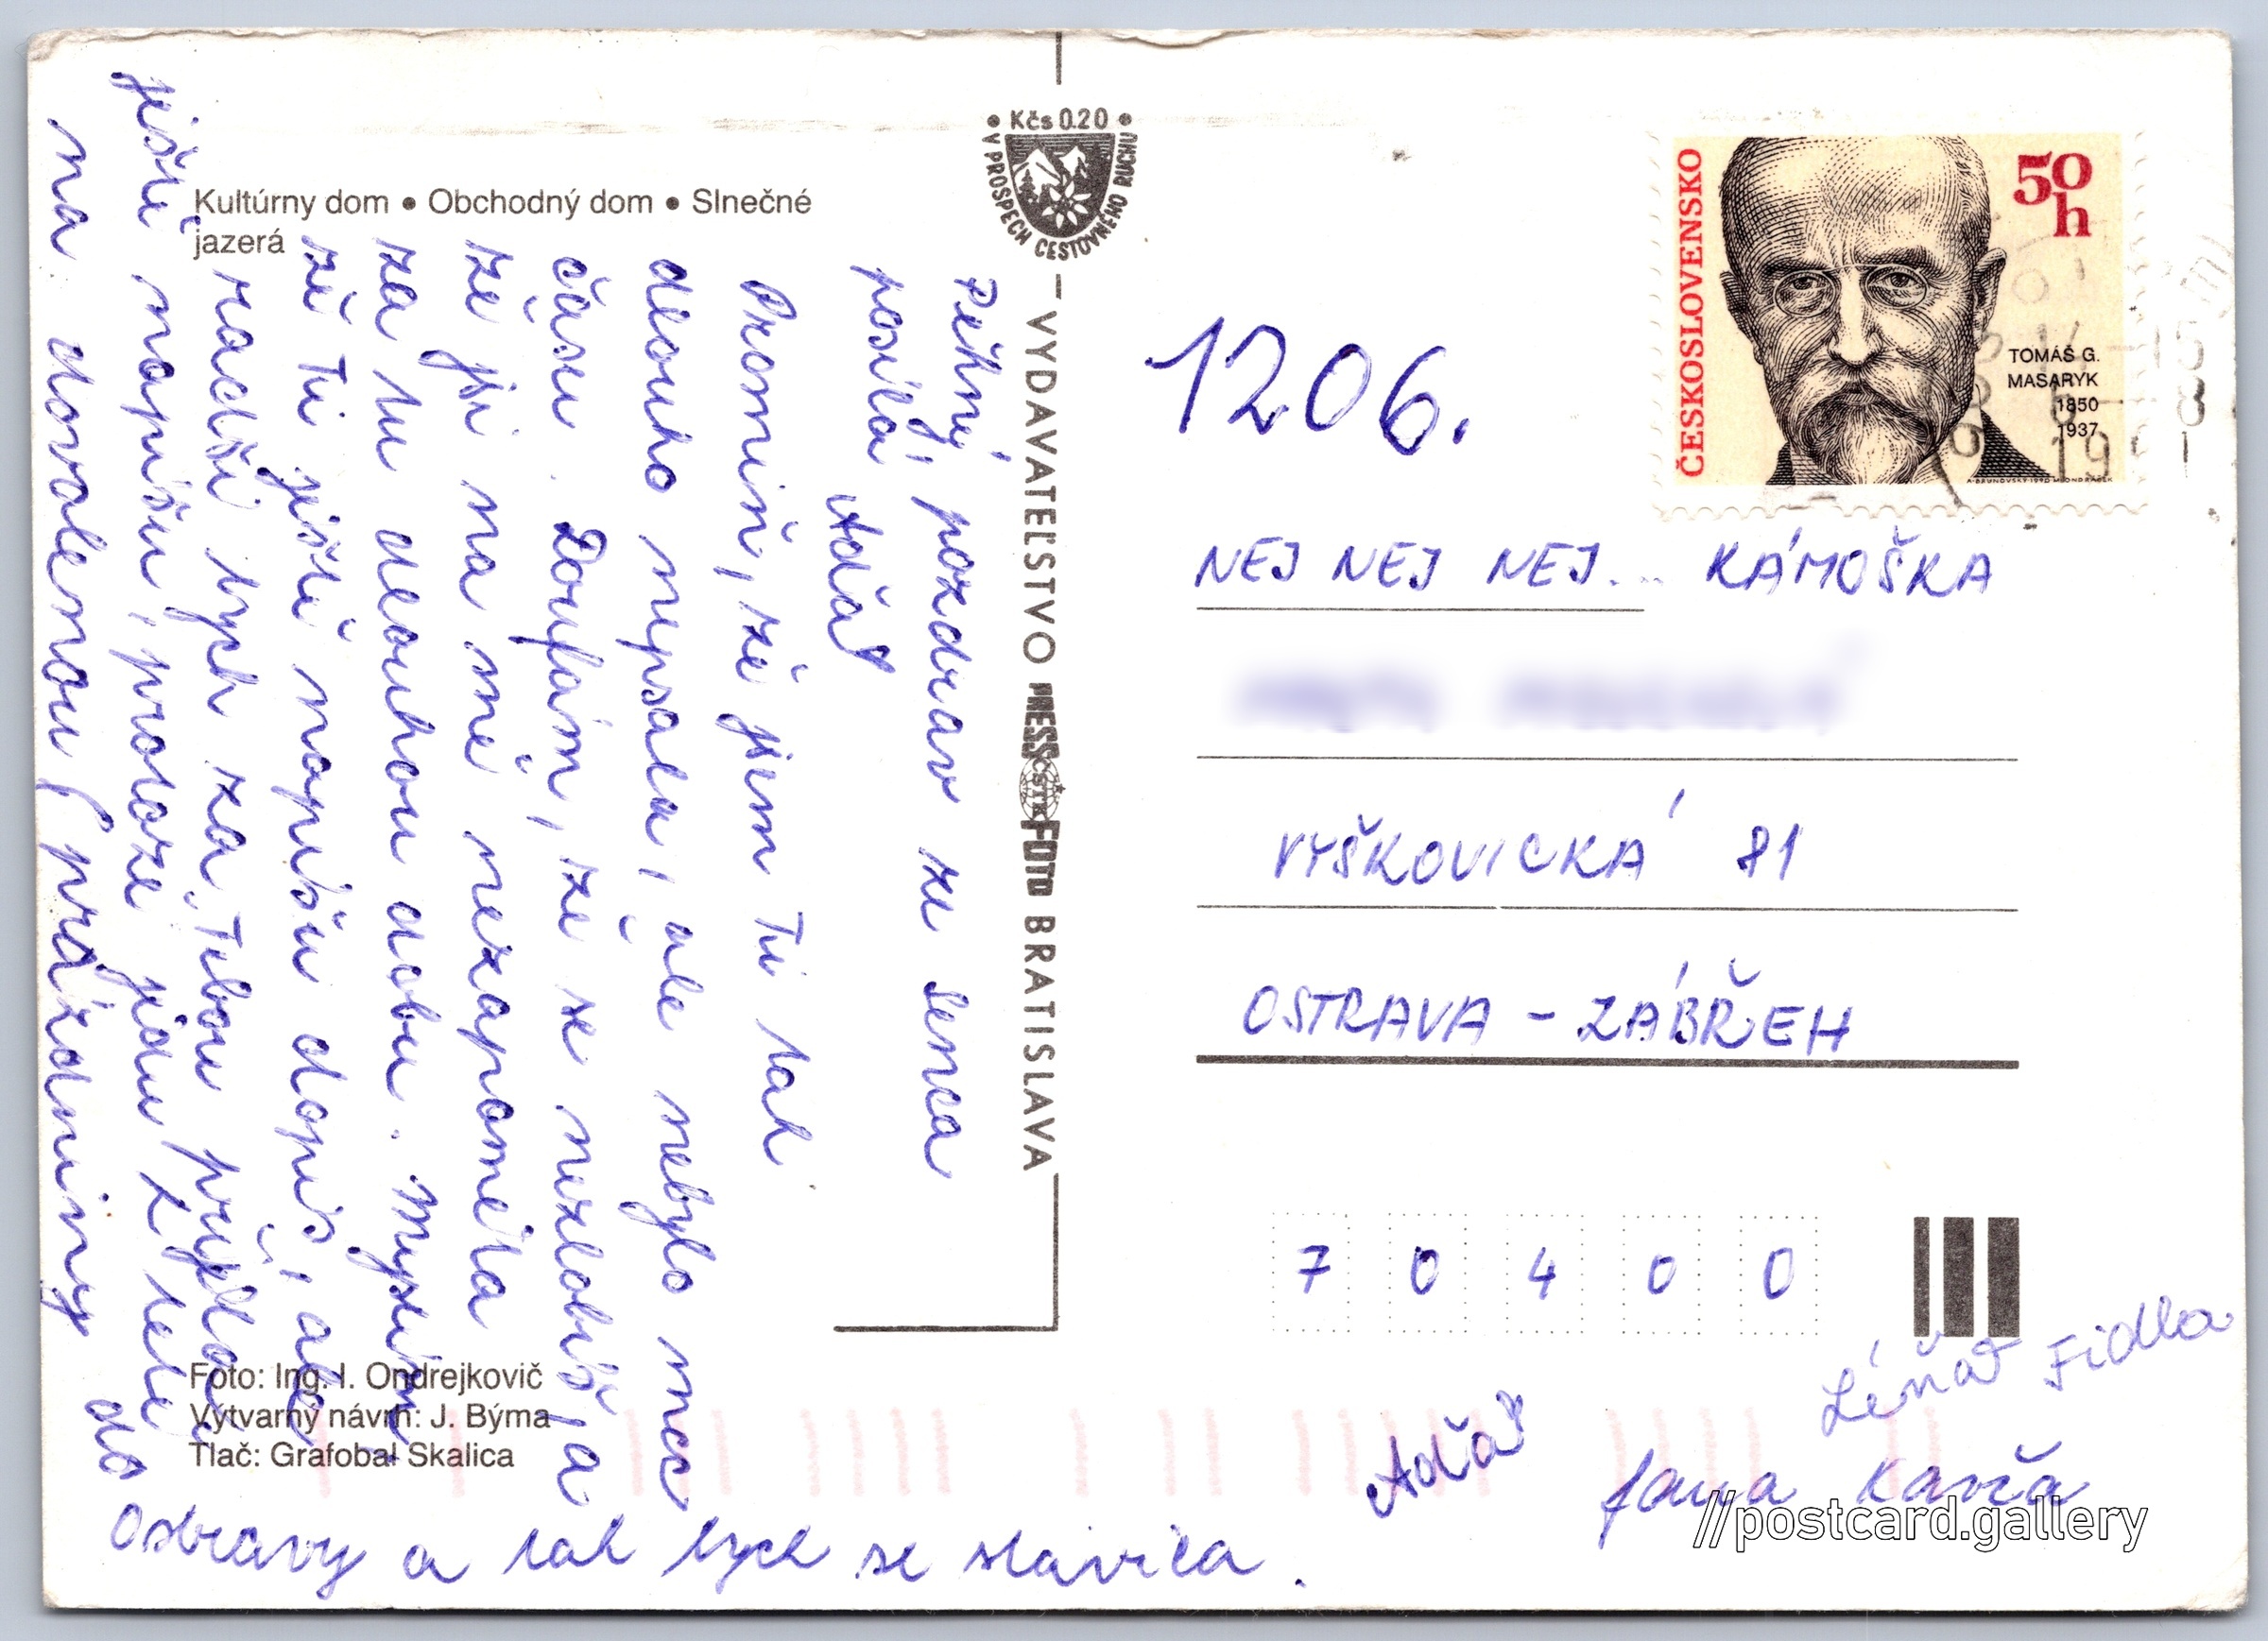 Kultúrny dom • Obchodný dom • Slnečné
jazerá
• Kčs 0.20 •
V PROSPECH CESTOVNÉHO RUCHU
VYDAVATEĽSTVO PRESSFOTO BRATISLAVA
ČSTK
Pěkný pozdrav ze Senca
posílá Aďa
Promiň, že jsem Ti tak
dlouho nepsala, ale nebylo moc
času. Doufám, že se nezlobíš, a
že jsi na mě nezapoměla
za tu dlouhou dobu. Myslím,
že Ti ještě napíšu dopis, ale
radši bych za Tebou přijela.
ještě napíšu, protože jedu s
na dovolenou (prázdniny do
Ostravy a tak bych se stavila.
Foto: Ing. I. Ondrejkovič
Výtvarný návrh: J. Býma
Tlač: Grafobal Skalica
ČESKOSLOVENSKO
50
h
TOMÁŠ G.
MASARYK
1850
1937
A. BRUNOVSKÝ • 1990 • M. ONDRÁČEK
1206.
NEJ NEJ NEJ... KÁMOŠKA
VYŠKOVICKÁ 81
OSTRAVA - ZÁBŘEH
7 0 4 0 0
Aďa
Léňa Fidla
Jana
//postcard.gallery